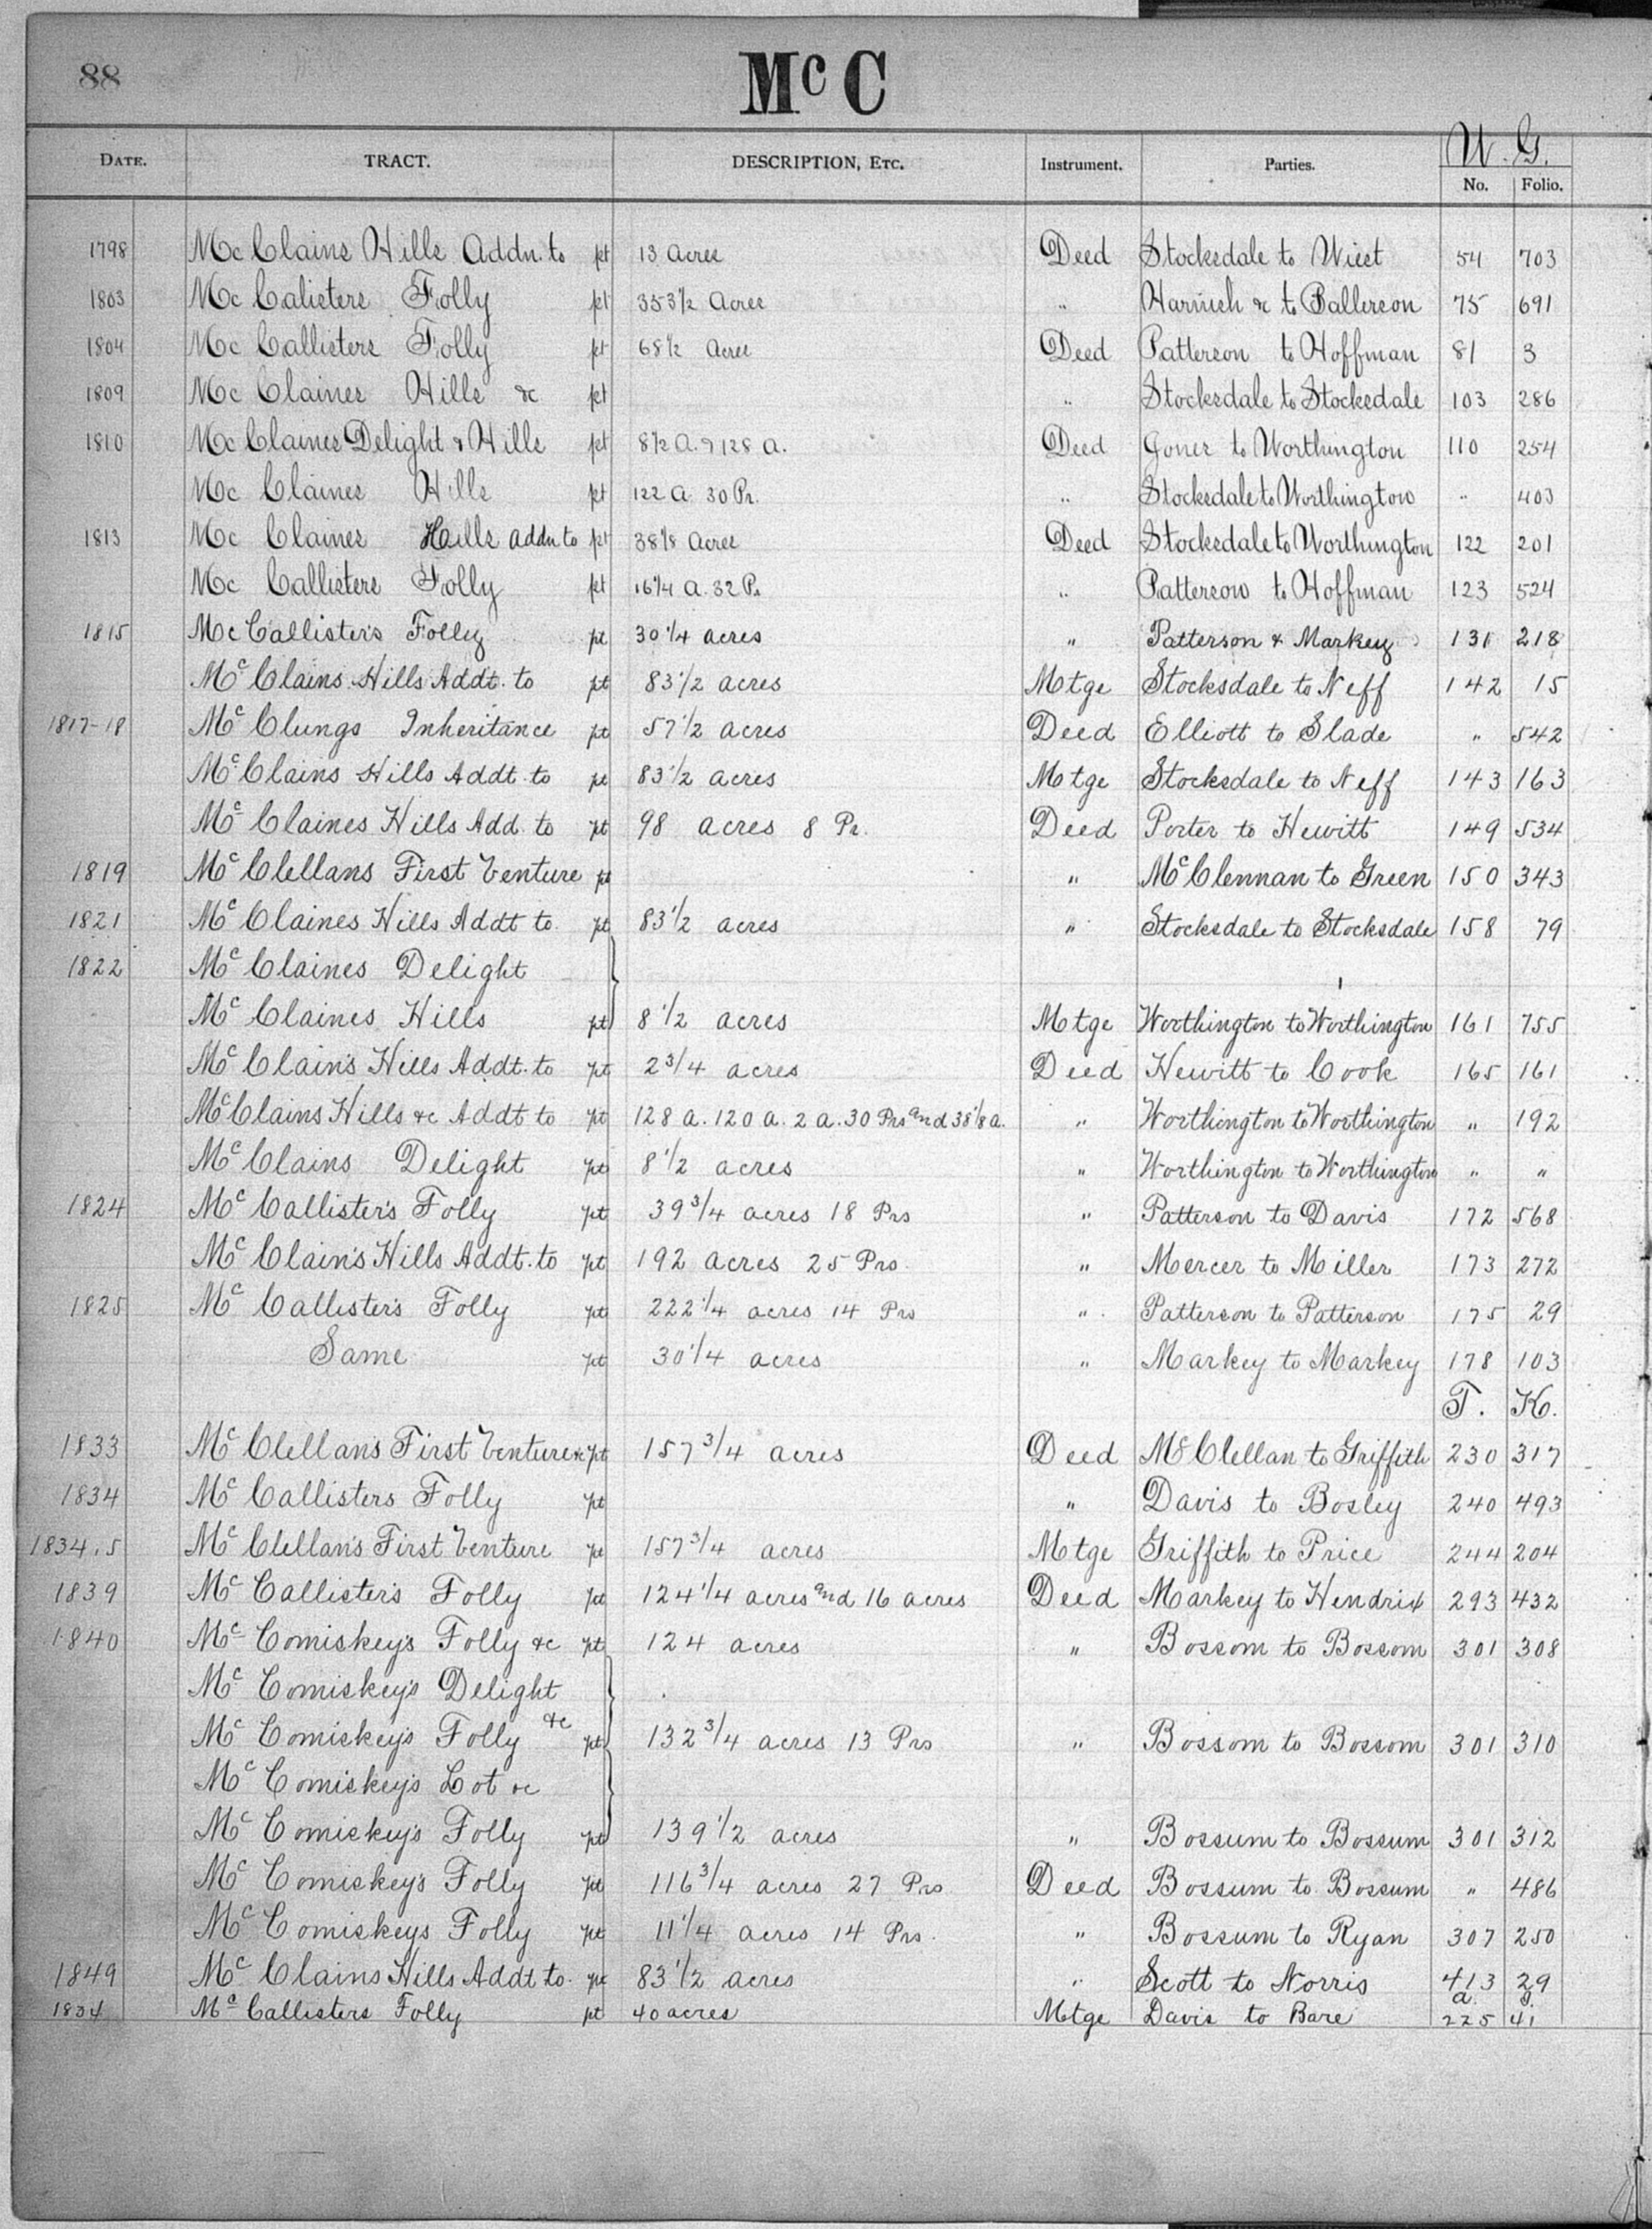 88
Mc C
DATE. TRACT. DESCRIPTION, ETC. Instrument. Parties. W. G. No. Folio.
1798 Mc Clains Hills Addn. to pt 13 Acres Deed Stocksdale to Wiest 54 703
1803 Mc Calisters Folly pt 353½ Acres " & to 75 691
1804 Mc Callisters Folly pt 68½ Acres Deed Patterson to Hoffman 81 3
1809 Mc Claines Hills &c pt " Stocksdale to Stocksdale 103 286
1810 Mc Claines Delight & Hills pt 8½ A. & 128 A. Deed to Worthington 110 254
Mc Claines Hills pt 122 A 30 Pr. " Stocksdale to Worthington " 403
1813 Mc Claines Hills addn to pt 38⅛ Acres Deed Stocksdale to Worthington 122 201
Mc Callisters Folly pt 16¼ A. 32 Ps " Patterson to Hoffman 123 524
1815 Mc Callister's Folly pt 30 1/4 acres " Patterson & Markey 131 218
Mc Clains Hills Addt. to pt 83 1/2 acres Mtge Stocksdale to Neff 142 15
1817-18 Mc Clungs Inheritance pt 57 1/2 acres Deed Elliott to Slade " 542
Mc Clains Hills Addt. to pt 83 1/2 acres Mtge Stocksdale to Neff 143 163
Mc Claines Hills Add. to pt 98 acres 8 Pr. Deed Porter to Hewitt 149 534
1819 Mc Clellans First Venture pt " Mc Clennan to Green 150 343
1821 Mc Claines Hills Addt to pt 83 1/2 acres " Stocksdale to Stocksdale 158 79
1822 Mc Claines Delight
Mc Claines Hills pt 8 1/2 acres Mtge Worthington to Worthington 161 755
Mc Clain's Hills Addt. to pt 2 3/4 acres Deed Hewitt to Cook 165 161
Mc Clains Hills &c Addt to pt 128 a. 120 a. 2 a. 30 Prs and 38 1/8 a. " Worthington to Worthington " 192
Mc Clains Delight pt 8 1/2 acres " Worthington to Worthington " "
1824 Mc Callister's Folly pt 39 3/4 acres 18 Prs " Patterson to Davis 172 568
Mc Clain's Hills Addt. to pt 192 acres 25 Prs. " Mercer to Miller 173 272
1825 Mc Callister's Folly pt 222 1/4 acres 14 Prs " Patterson to Patterson 175 29
Same pt 30 1/4 acres " Markey to Markey 178 103
T. K.
1833 Mc Clellan's First Venture &c pt 157 3/4 acres Deed Mc Clellan to Griffith 230 317
1834 Mc Callisters Folly pt " Davis to Bosley 240 493
1834.5 Mc Clellan's First Venture pt 157 3/4 acres Mtge Griffith to Price 244 204
1839 Mc Callister's Folly pt 124 1/4 acres and 16 acres Deed Markey to Hendrix 293 432
1840 Mc Comiskey's Folly &c pt 124 acres " Bossom to Bossom 301 308
Mc Comiskey's Delight
Mc Comiskey's Folly &c pt 132 3/4 acres 13 Prs " Bossom to Bossom 301 310
Mc Comiskey's Lot &c
Mc Comiskey's Folly pt 139 1/2 acres " Bossum to Bossum 301 312
Mc Comiskey's Folly pt 116 3/4 acres 27 Prs Deed Bossum to Bossum " 486
Mc Comiskeys Folly pt 11 1/4 acres 14 Prs. " Bossum to Ryan 307 250
1849 Mc Clains Hills Addt to pt 83 1/2 acres " Scott to Norris 413 29
a.
1834 Mc Callisters Folly pt 40 acres Mtge Davis to Bare 225 41